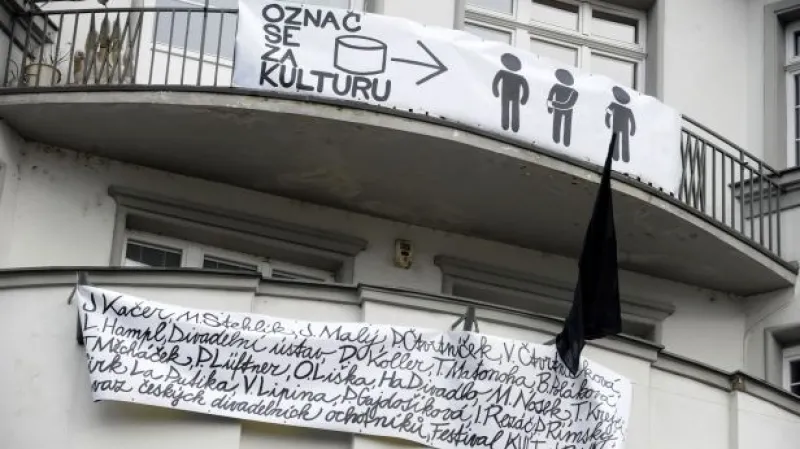 OZNAČ
SE
ZA
KULTURU
J. Kačer, M. Stehlík, J. Malý, P. Čtvrtníček, V. Čtvrtníčková,
L. Hampl, Divadelní ústav, D. Koller, T. Matonoha, B.
T. Měcháček, P. Lüftner, O. Liška, HaDivadlo, M. Nosek, T.
Cirk La Putika, V. Lipina, P. Gajdošíková, J. Rezáč, D. Rimský
svaz českých divadelních ochotníků, Festival